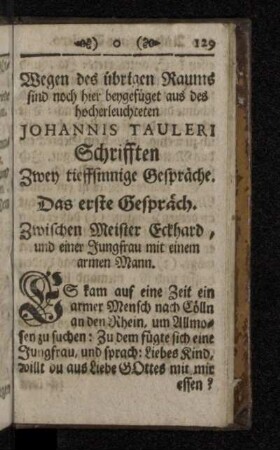 ) o ( 129
Wegen des übrigen Raums
sind noch hier beygefüget aus des
hocherleuchteten
JOHANNIS TAULERI
Schrifften
Zwey tieffsinnige Gespräche.
Das erste Gespräch.
Zwischen Meister Eckhard,
und einer Jungfrau mit einem
armen Mann.
ES kam auf eine Zeit ein
armer Mensch nach Cölln
an den Rhein, um Allmo-
sen zu suchen: Zu dem fügte sich eine
Jungfrau, und sprach: Liebes Kind,
willt du aus Liebe GOttes mit mir
essen?